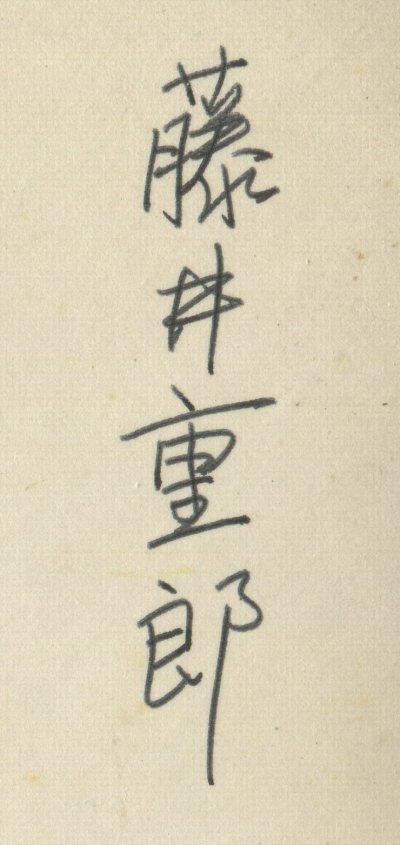 藤井重郎